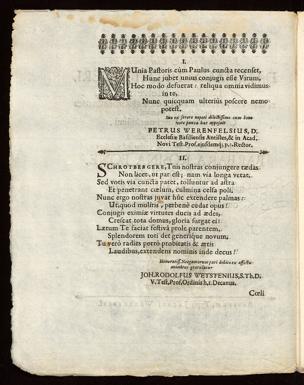 I.
MUnia Pastoris cùm Paulus cuncta recenset,
Hunc jubet unius conjugis esse Virum.
Hoc modo defuerat: reliqua omnia vidimus
in te,
Nunc quicquam ulterius poscere nemo
potest.
PETRUS WERENFELSIUS, D.
Ecclesiæ Basiliensis Antistes, & in Acad.
Novi Test. Prof. ejusdemq; p.t. Rector.
II.
SCHROTBERGERE, Tuis nostras conjungere tædas
Non licet, ut par est; nam via longa vetat.
Sed votis via cuncta patet, tolluntur ad astra
Et penetrant cœlum, culmina celsa poli.
Nunc ergo nostras juvat hûc extendere palmas:
Ut, quod multis, perbenè cedat opus!
Conjugii eximiæ virtutes ducis ad ædes,
Crescat tota domus, gloria surgat ei:
Lætum Te faciat festivâ prole parentem,
Splendorem toti det generique novum,
Tu verò radiis porrò probitatis & artis
Laudibus, extendens nominis inde decus!
JOH. RODOLFUS WETSTENIUS, S.Th.D.
V. Test. Prof. Ordinis h.t. Decanus.
Cœli